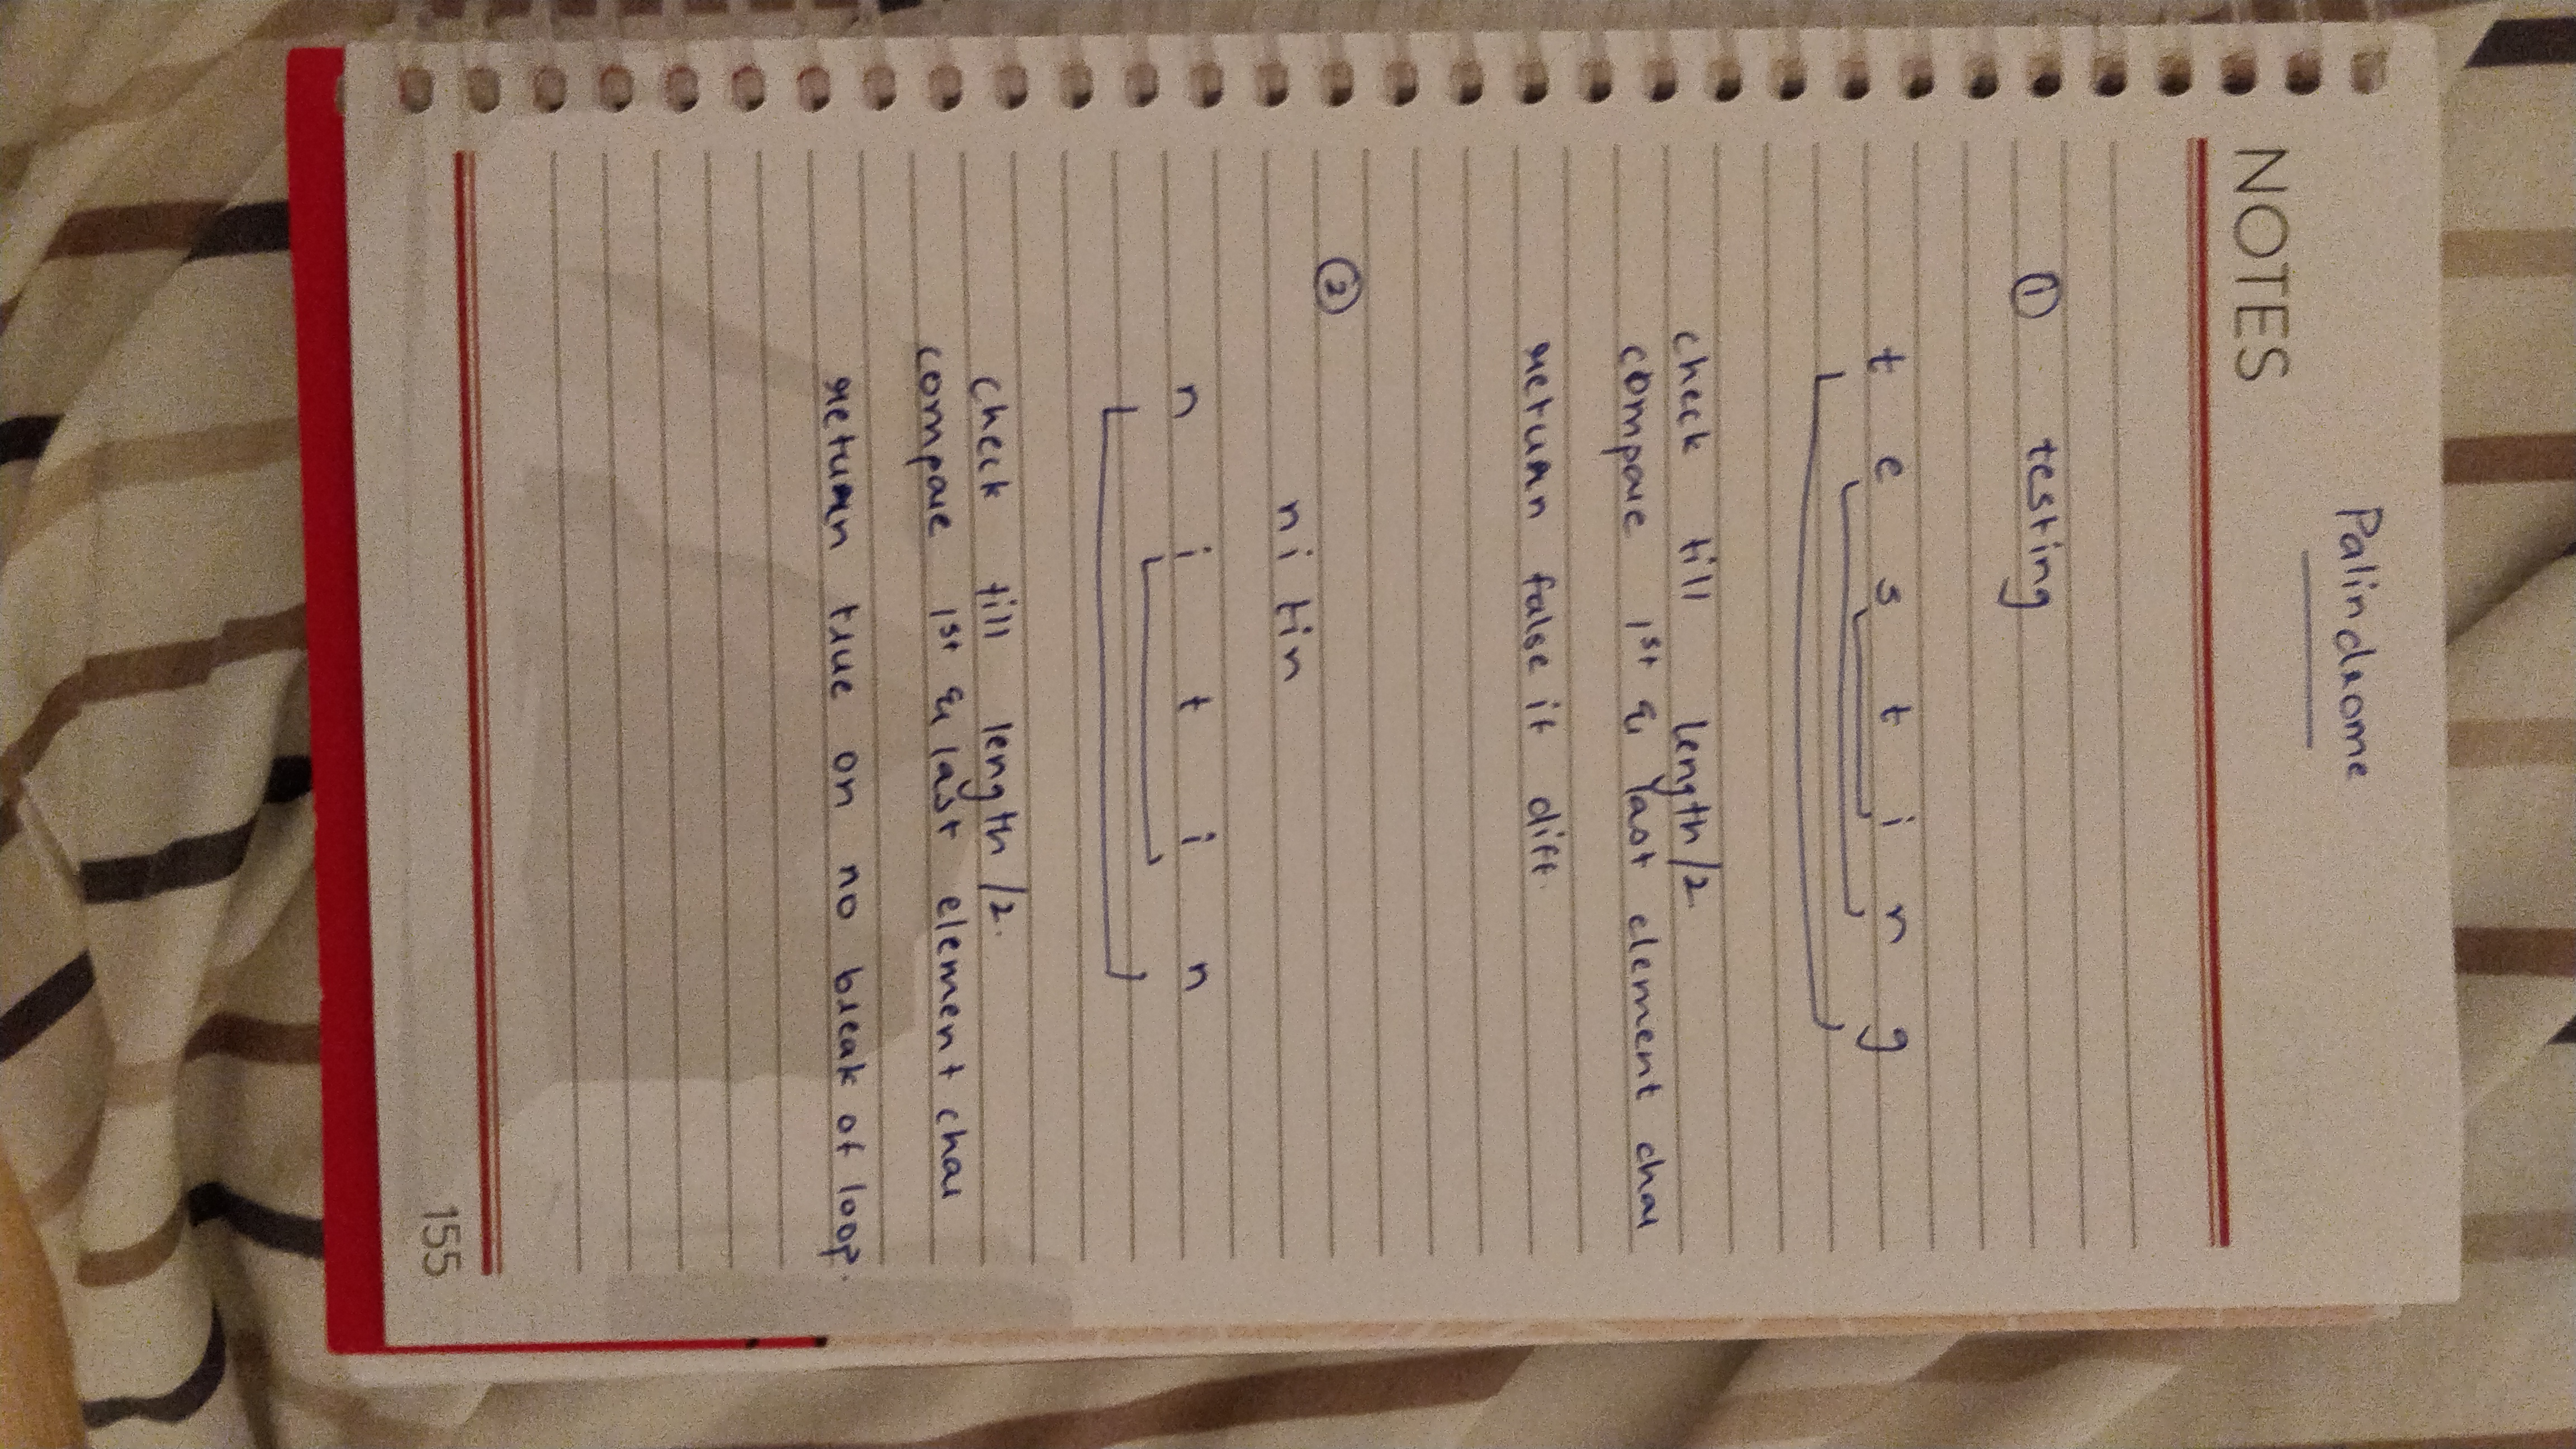 Palindrome
NOTES
① testing
t e s t i n g
check till length/2.
compare 1st & last element char
return false if diff.
②
nitin
n i t i n
check till length/2.
compare 1st & last element char
return true on no break of loop.
155